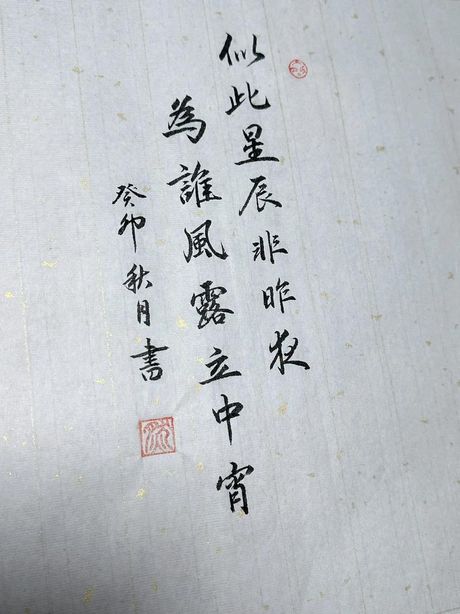 似此星辰非昨夜
為誰風露立中宵
癸卯秋月書